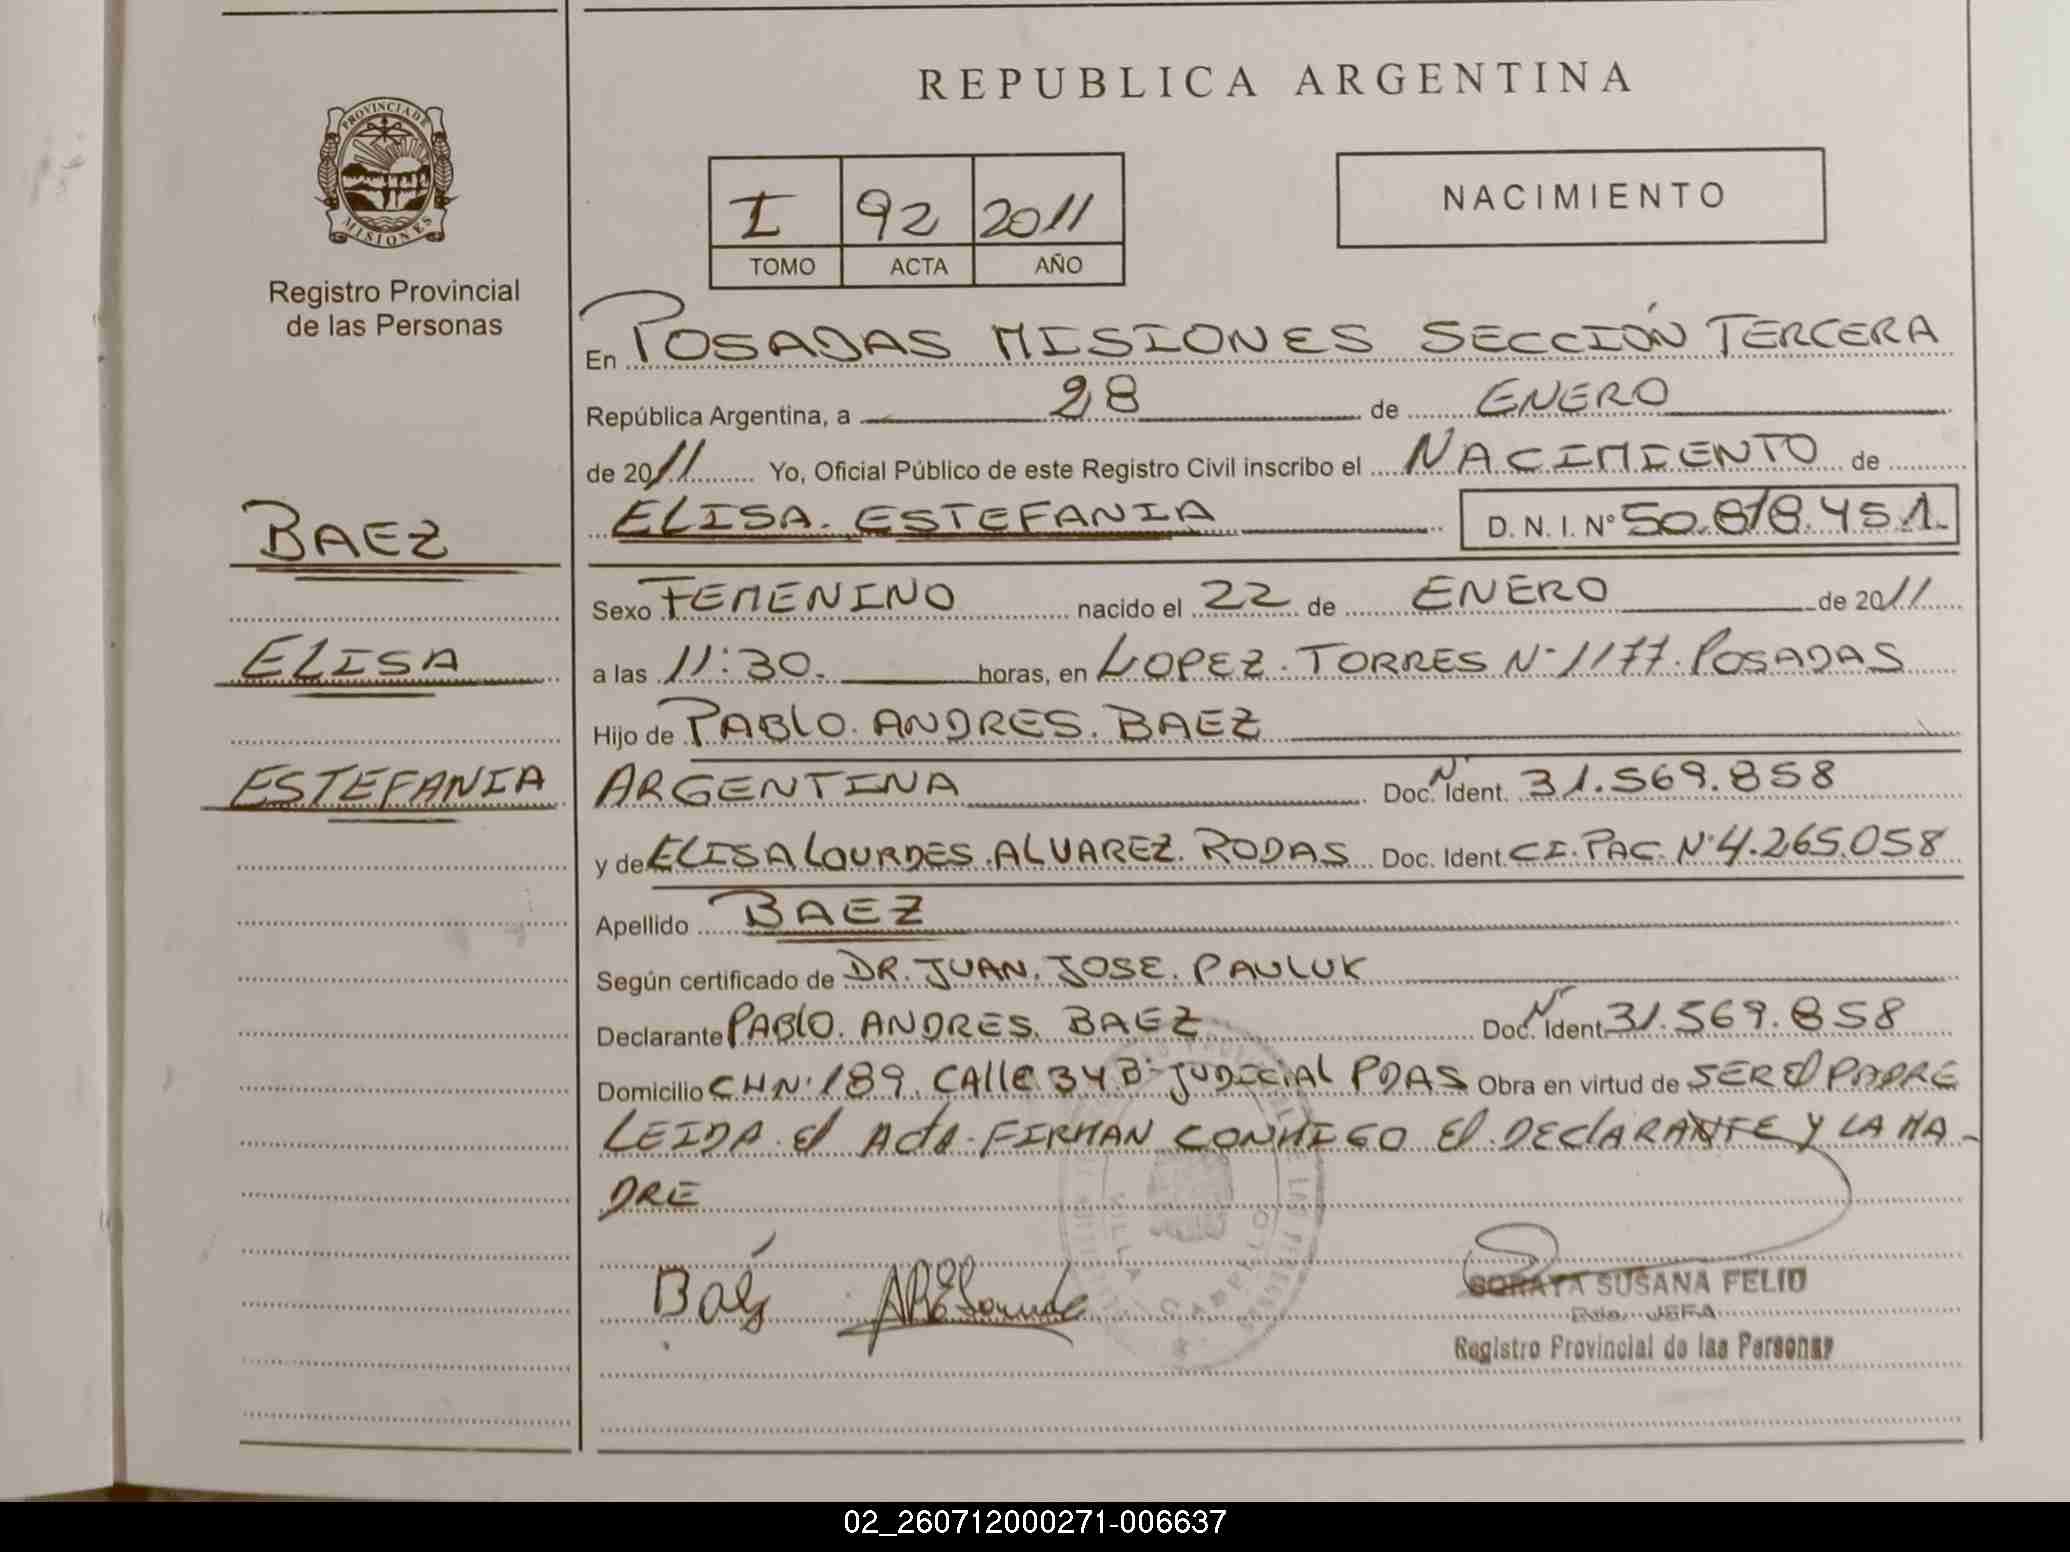 REPUBLICA ARGENTINA
PROVINCIA DE
MISIONES
Registro Provincial
de las Personas
I 92 2011
TOMO ACTA AÑO
NACIMIENTO
En POSADAS MISIONES SECCIÓN TERCERA
República Argentina, a 28 de ENERO
de 2011 Yo, Oficial Público de este Registro Civil inscribo el NACIMIENTO de
BAEZ
ELISA. ESTEFANIA D. N. I. N° 50.818.451
Sexo FEMENINO nacido el 22 de ENERO de 2011
ELISA
a las 11:30. horas, en LOPEZ. TORRES N° 1177. POSADAS
Hijo de PABLO. ANDRES. BAEZ
ESTEFANIA
ARGENTINA Doc. N° Ident. 31.569.858
y de ELISA LOURDES. ALVAREZ. RODAS Doc. Ident. C.I. PAC. N° 4.265.058
Apellido BAEZ
Según certificado de DR. JUAN. JOSE. PAULUK
Declarante PABLO. ANDRES. BAEZ Doc. N° Ident. 31.569.858
Domicilio CH N° 189. CALLE 34 B° JUDICIAL PDAS Obra en virtud de SER El PADRE
LEIDA. El ActA. FIRMAN CONMIGO El. DEClARANTE Y LA MA-
DRE
Baez
SORAYA SUSANA FELIU
JEFA
Registro Provincial de las Personas
02_260712000271-006637